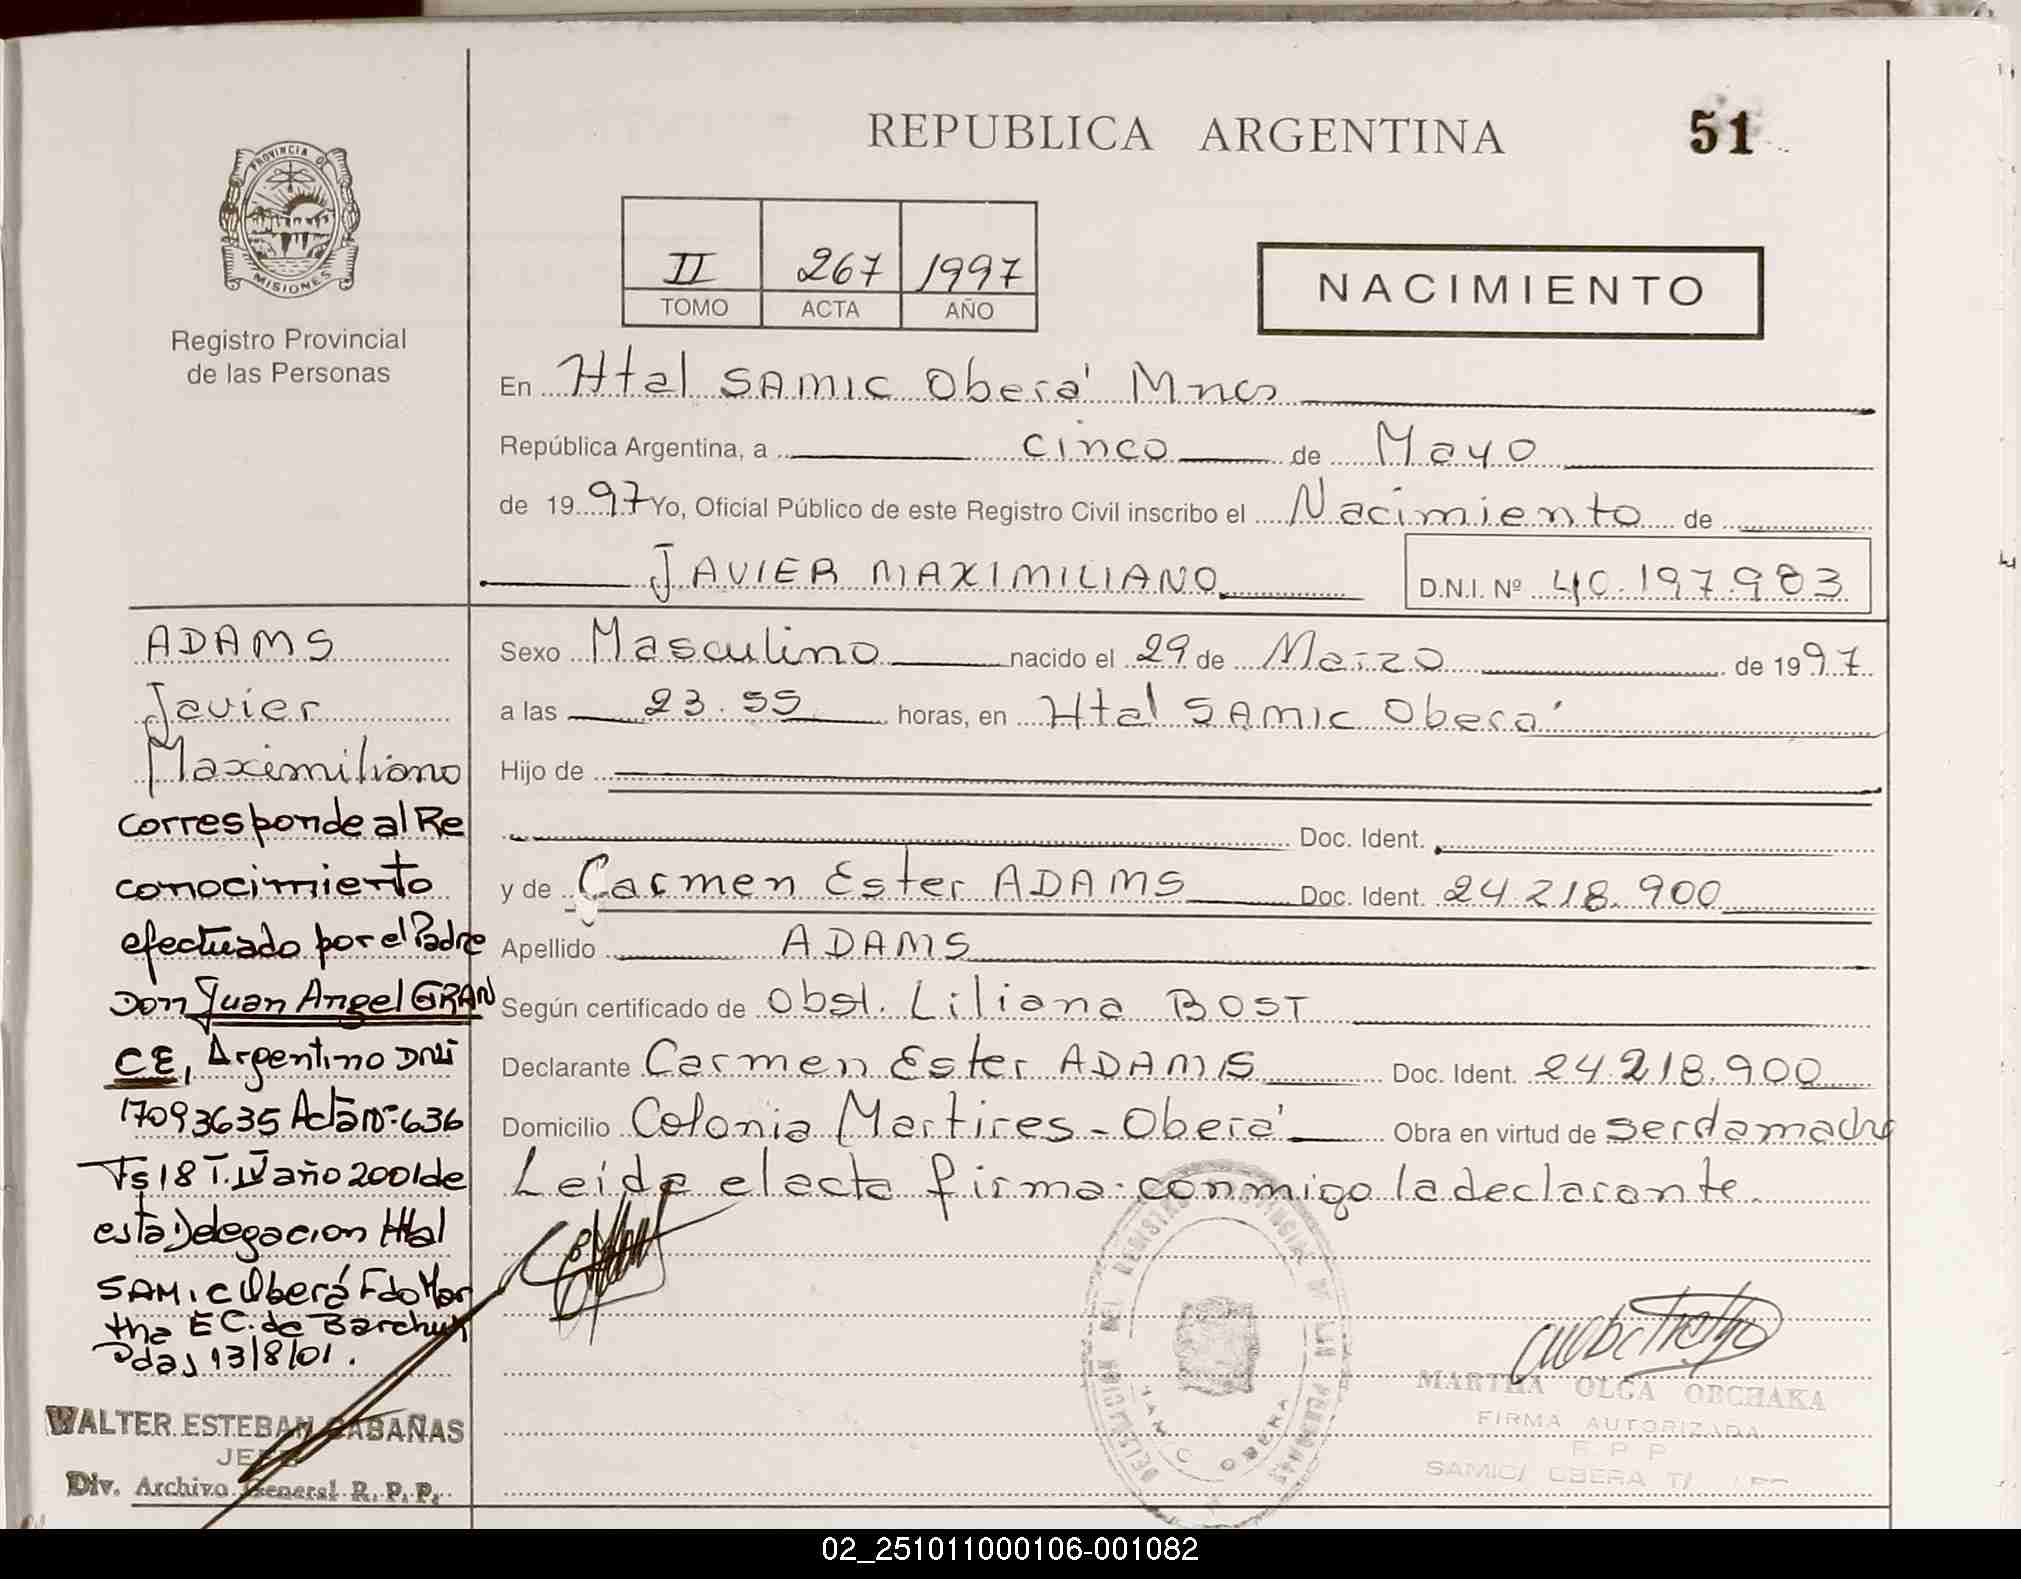 REPUBLICA ARGENTINA
51
PROVINCIA DE
MISIONES
Registro Provincial
de las Personas
II 267 1997
TOMO ACTA AÑO
NACIMIENTO
En Htal SAMIC Oberá Mnes
República Argentina, a cinco de Mayo
de 1997 Yo, Oficial Público de este Registro Civil inscribo el Nacimiento de
JAVIER MAXIMILIANO D.N.I. Nº 40.197.983
Sexo Masculino nacido el 29 de Marzo de 1997
a las 23.55 horas, en Htal SAMIC Oberá
Hijo de
Doc. Ident.
y de Carmen Ester ADAMS Doc. Ident. 24.218.900
Apellido ADAMS
Según certificado de Obst. Liliana BOST
Declarante Carmen Ester ADAMS Doc. Ident. 24.218.900
Domicilio Colonia Martires - Oberá Obra en virtud de ser da madre
Leída el acta firma conmigo la declarante
ADAMS
Javier
Maximiliano
corresponde al Re
conocimiento
efectuado por el Padre
Don Juan Angel GRAN
CE, Argentino DNI
17093635 Acta nº 636
Fs 18 T. IV año 2001 de
esta Delegacion Htal
SAMIC Oberá Fdo Mar
tha E C. de
Pdas 13/8/01.
WALTER ESTEBAN CABAÑAS
JEFE
Div. Archivo General R. P. P.
DELEGACION DEL REGISTRO PROVINCIAL DE LAS PERSONAS
SAMIC OBERA
MARTHA OLGA OBCHAKA
FIRMA AUTORIZADA
R P P
SAMIC/ OBERA
02_251011000106-001082